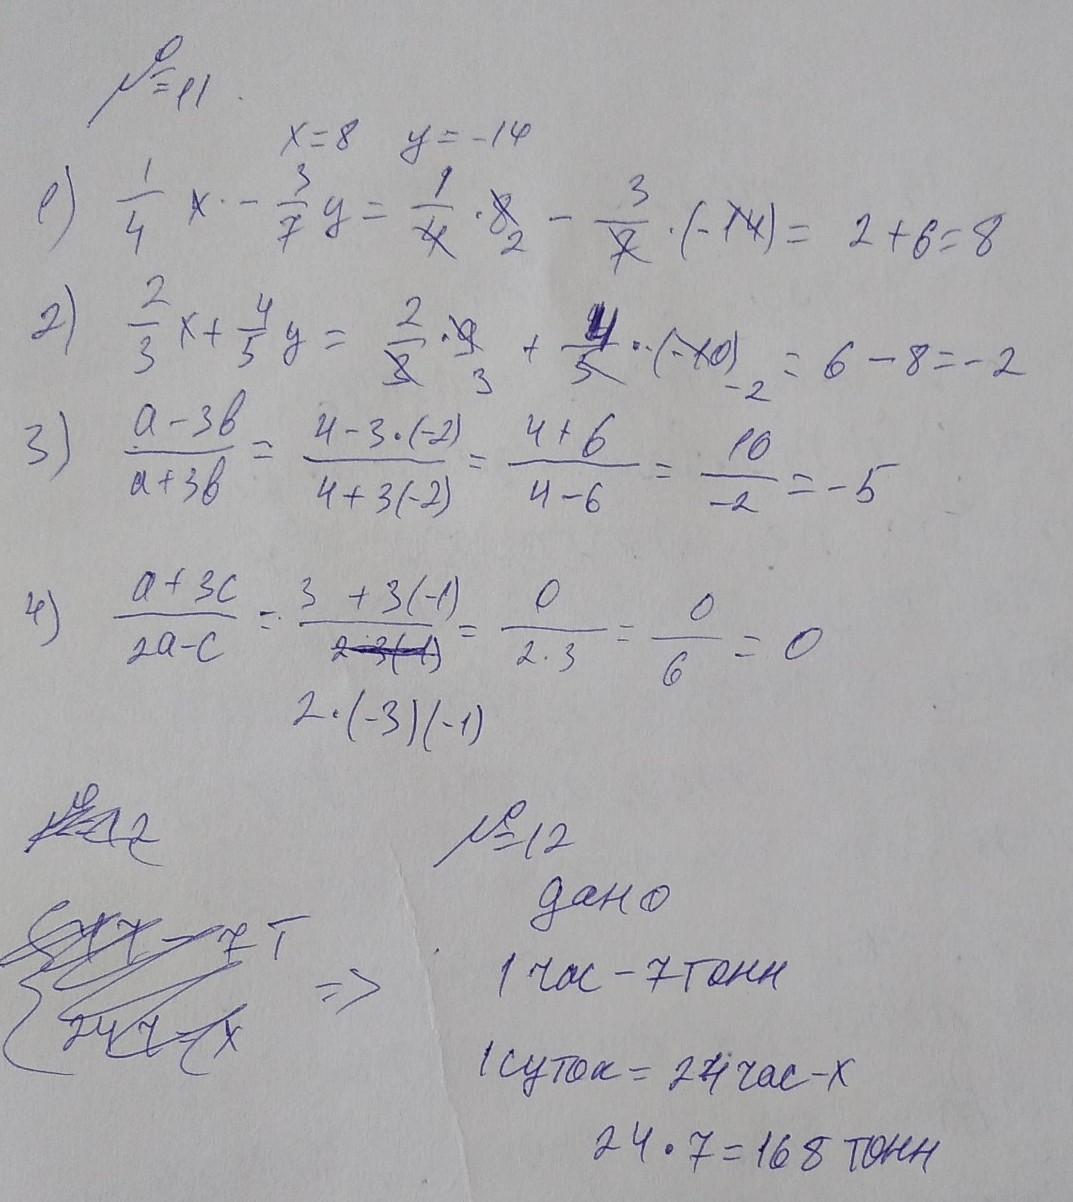 №11
x=8 y=-14
1) 1/4 x - 3/7 y = 1/4 · 8 2 - 3/7 · (-14) = 2+6=8
2) 2/3 x + 4/5 y = 2/3 · 9 3 + 4/5 · (-10) -2 = 6-8=-2
3) a-3b/a+3b = 4-3·(-2)/4+3(-2) = 4+6/4-6 = 10/-2 = -5
4) a+3c/2a-c = 3+3(-1)/2·(-3)(-1) = 0/2·3 = 0/6 = 0
№12
дано
1 час - 7 тонн
=> 1 суток = 24 час - x
24·7=168 тонн